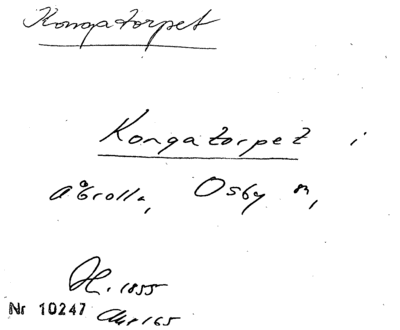 Kongatorpet
Kongatorpet i
Åbrolla, Osby sn,
H. 1855
Nr 10247